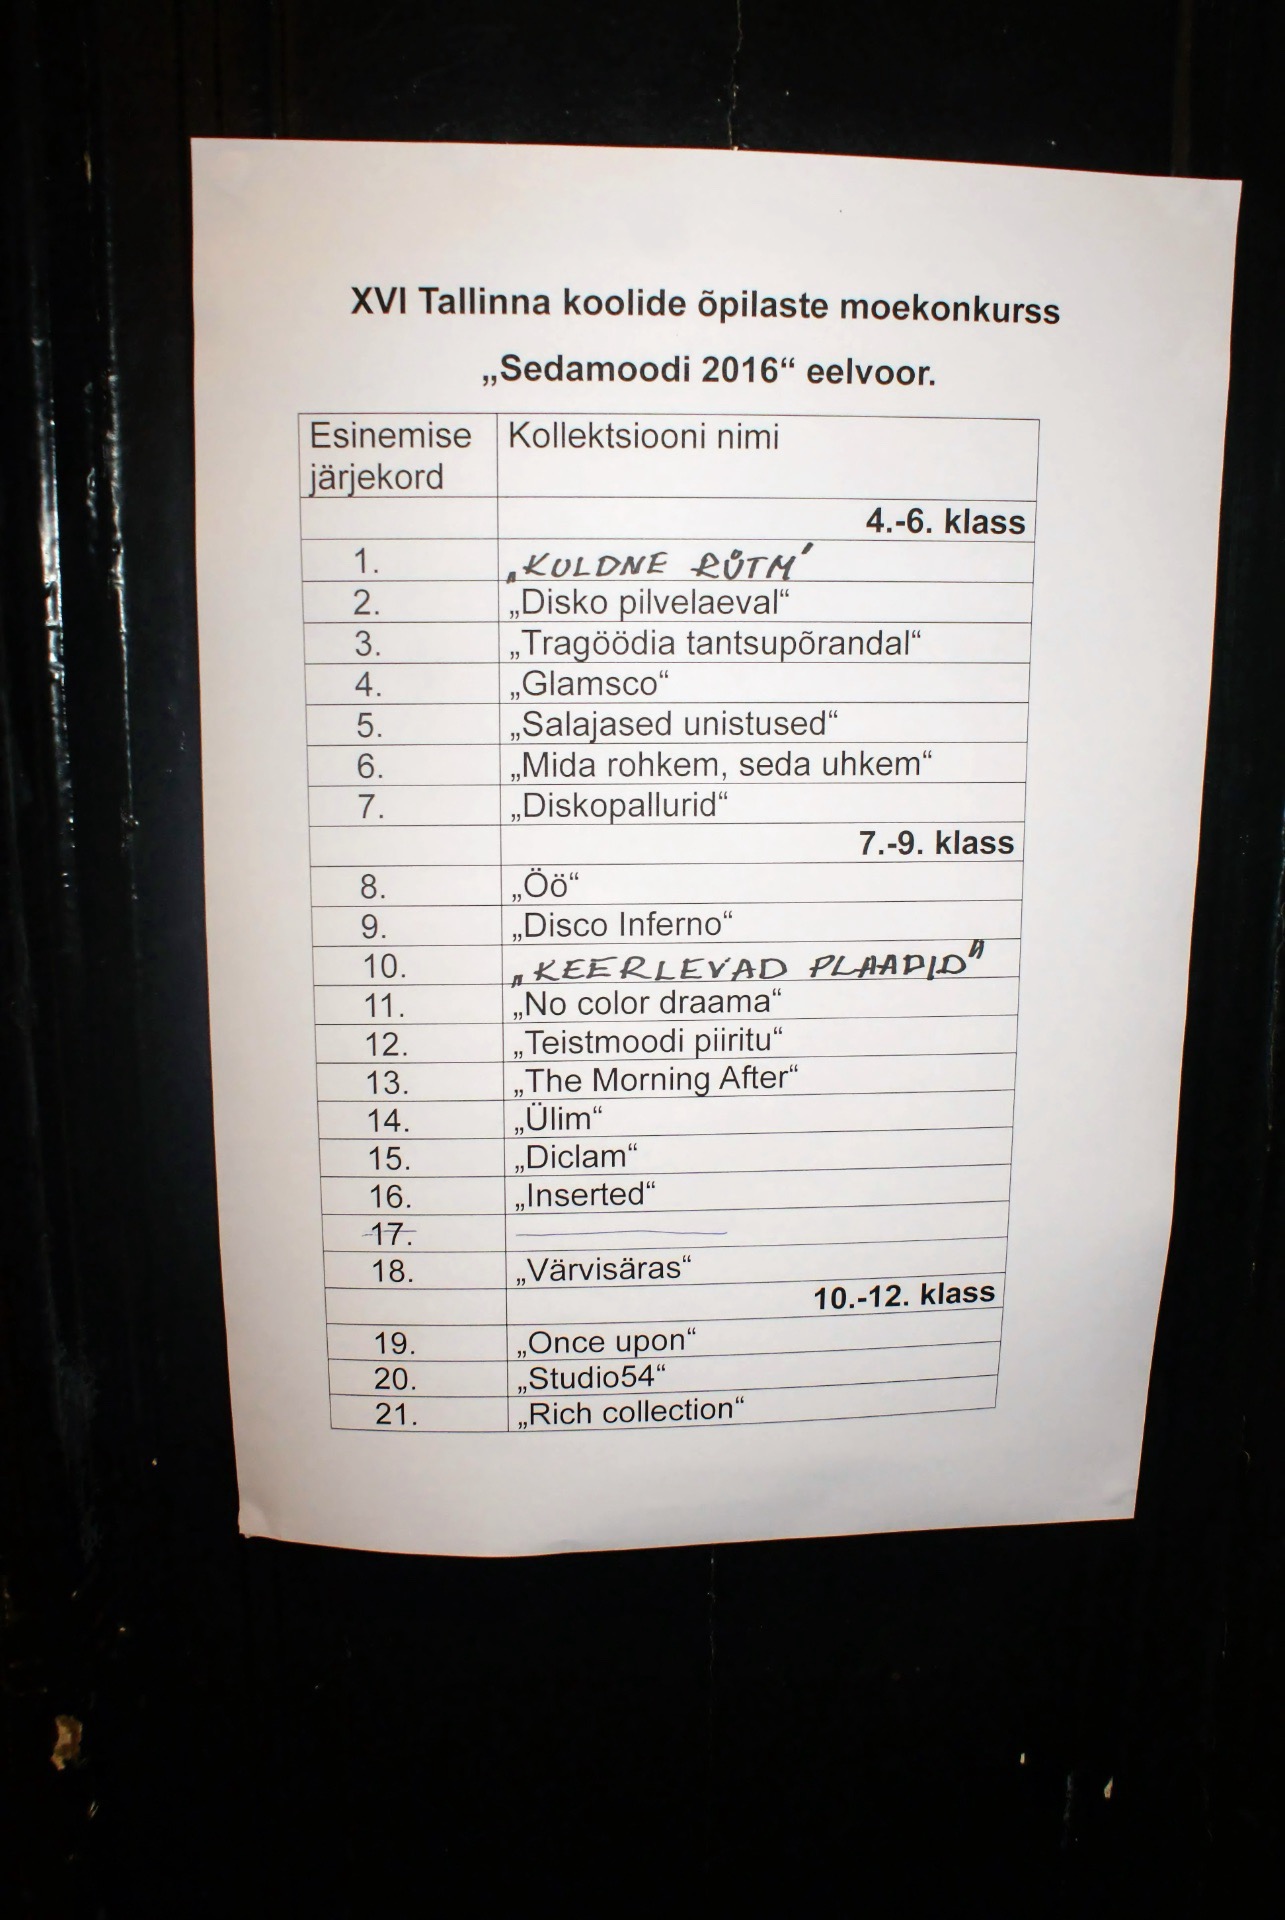 XVI Tallinna koolide õpilaste moekonkurss
„Sedamoodi 2016“ eelvoor.
Esinemise järjekord Kollektsiooni nimi
4.-6. klass
1. „KULDNE RÜTM“
2. „Disko pilvelaeval“
3. „Tragöödia tantsupõrandal“
4. „Glamsco“
5. „Salajased unistused“
6. „Mida rohkem, seda uhkem“
7. „Diskopallurid“
7.-9. klass
8. „Öö“
9. „Disco Inferno“
10. „KEERLEVAD PLAADID“
11. „No color draama“
12. „Teistmoodi piiritu“
13. „The Morning After“
14. „Ülim“
15. „Diclam“
16. „Inserted“
17.
18. „Värvisäras“
10.-12. klass
19. „Once upon“
20. „Studio54“
21. „Rich collection“